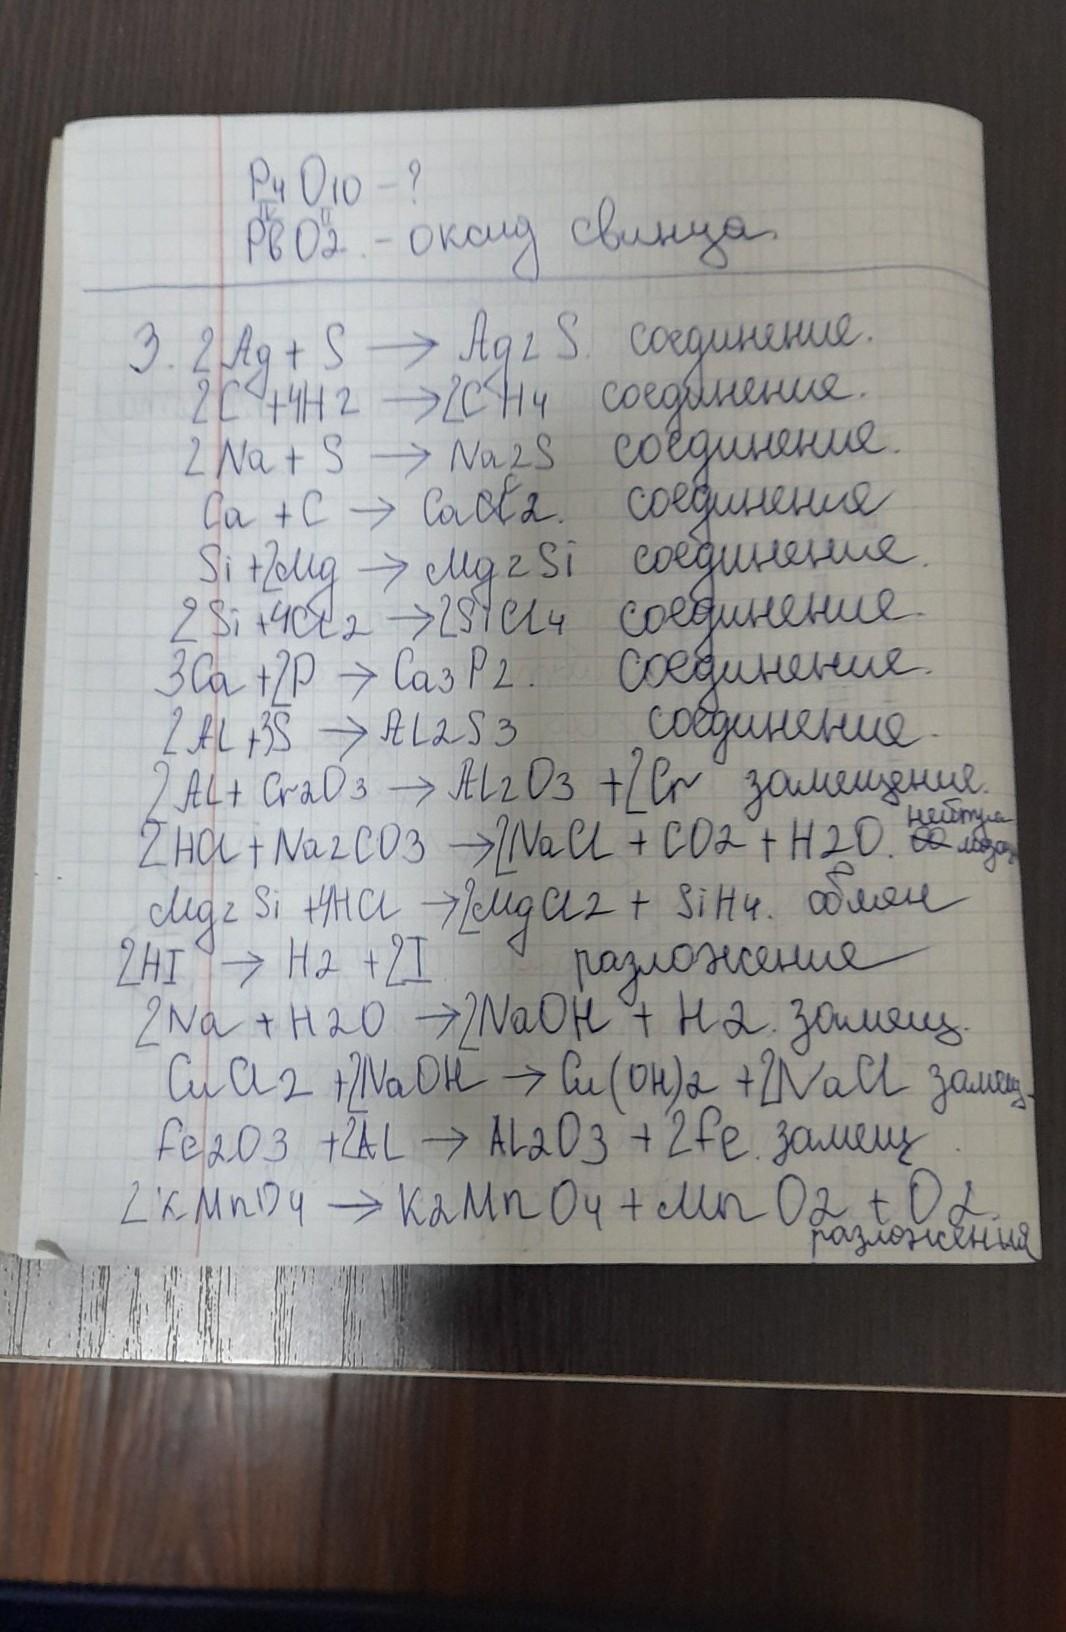 P4O10 - ?
IV II
PbO2. - оксид свинца.
3. 2Ag + S → Ag2S. соединение.
2C + 4H2 → 2CH4 соединение.
2Na + S → Na2S соединение.
Ca + C → CaC2. соединение
Si + 2Mg → Mg2Si соединение.
2Si + 4Cl2 → 2SiCl4 соединение.
3Ca + 2P → Ca3P2. соединение.
2Al + 3S → Al2S3 соединение.
2Al + Cr2O3 → Al2O3 + 2Cr замещение.
2HCl + Na2CO3 → 2NaCl + CO2 + H2O.
Mg2Si + 4HCl → 2MgCl2 + SiH4. обмен
2HI → H2 + 2I разложение
2Na + H2O → 2NaOH + H2. замещ.
CuCl2 + 2NaOH → Cu(OH)2 + 2NaCl замещ.
Fe2O3 + 2Al → Al2O3 + 2Fe. замещ.
2KMnO4 → K2MnO4 + MnO2 + O2.
разложения